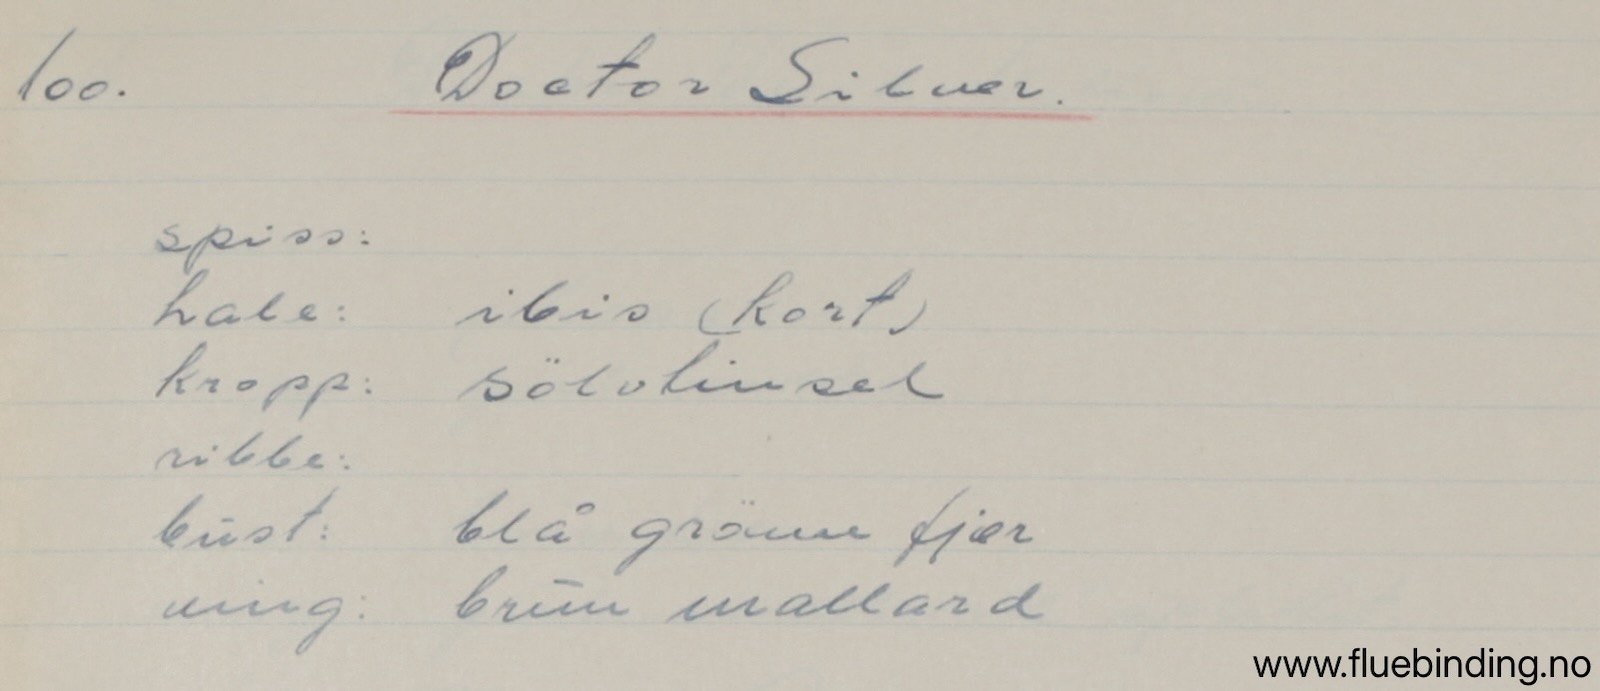 100. Doctor Silver.
spiss:
hale: ibis (kort)
kropp: sölvtinsel
ribbe:
bust: blå grönne fjær
ving: brun mallard
www.fluebinding.no